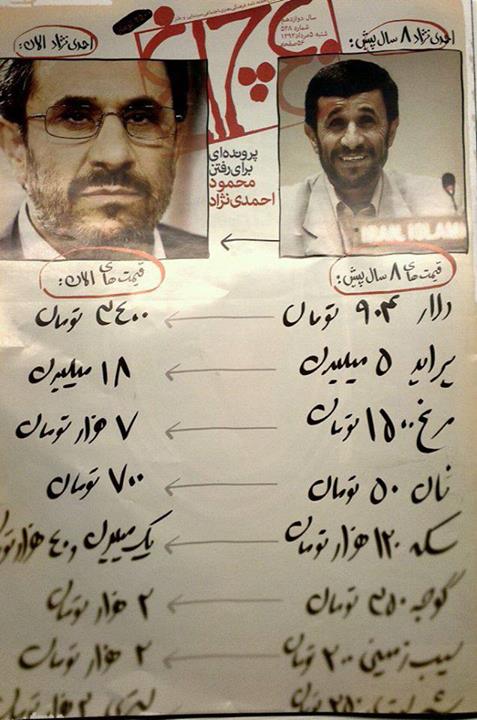 هفته نامه فرهنگی هنری اجتماعی سینمایی و طنز
سال دوازدهم
شماره ۵۲۸
شنبه ۵ مرداد ۱۳۹۲
۵۶ صفحه
چلچراغ
احمدی نژاد ۸ سال پیش:
احمدی نژاد الان:
پرونده‌ای
برای رفتن
محمود
احمدی‌نژاد
IRAN, ISLAMI
قیمت های ۸ سال پیش:
قیمت های الان:
دلار ۹۰۴ تومان ← ۳۴۰۰ تومان
پراید ۵ میلیون ← ۱۸ میلیون
مرغ ۱۵۰۰ تومان ← ۷ هزار تومان
نان ۵۰ تومان ← ۷۰۰ تومان
سکه ۱۲۰ هزار تومان ← یک میلیون و ۴۰ هزار تو
گوجه ۳۵۰ تومان ← ۲ هزار تومان
سیب زمینی ۲۰۰ تومان ← ۲ هزار تومان